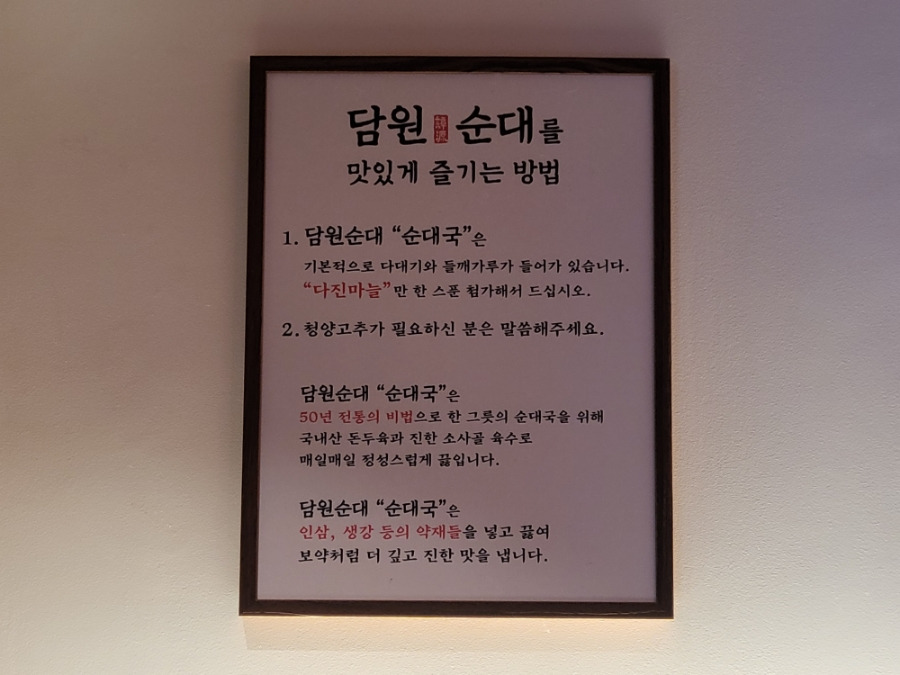 담원 순대를
맛있게 즐기는 방법
1. 담원순대 “순대국”은
기본적으로 다대기와 들깨가루가 들어가 있습니다.
“다진마늘”만 한 스푼 첨가해서 드십시오.
2. 청양고추가 필요하신 분은 말씀해주세요.
담원순대 “순대국”은
50년 전통의 비법으로 한 그릇의 순대국을 위해
국내산 돈두육과 진한 소사골 육수로
매일매일 정성스럽게 끓입니다.
담원순대 “순대국”은
인삼, 생강 등의 약재들을 넣고 끓여
보약처럼 더 깊고 진한 맛을 냅니다.